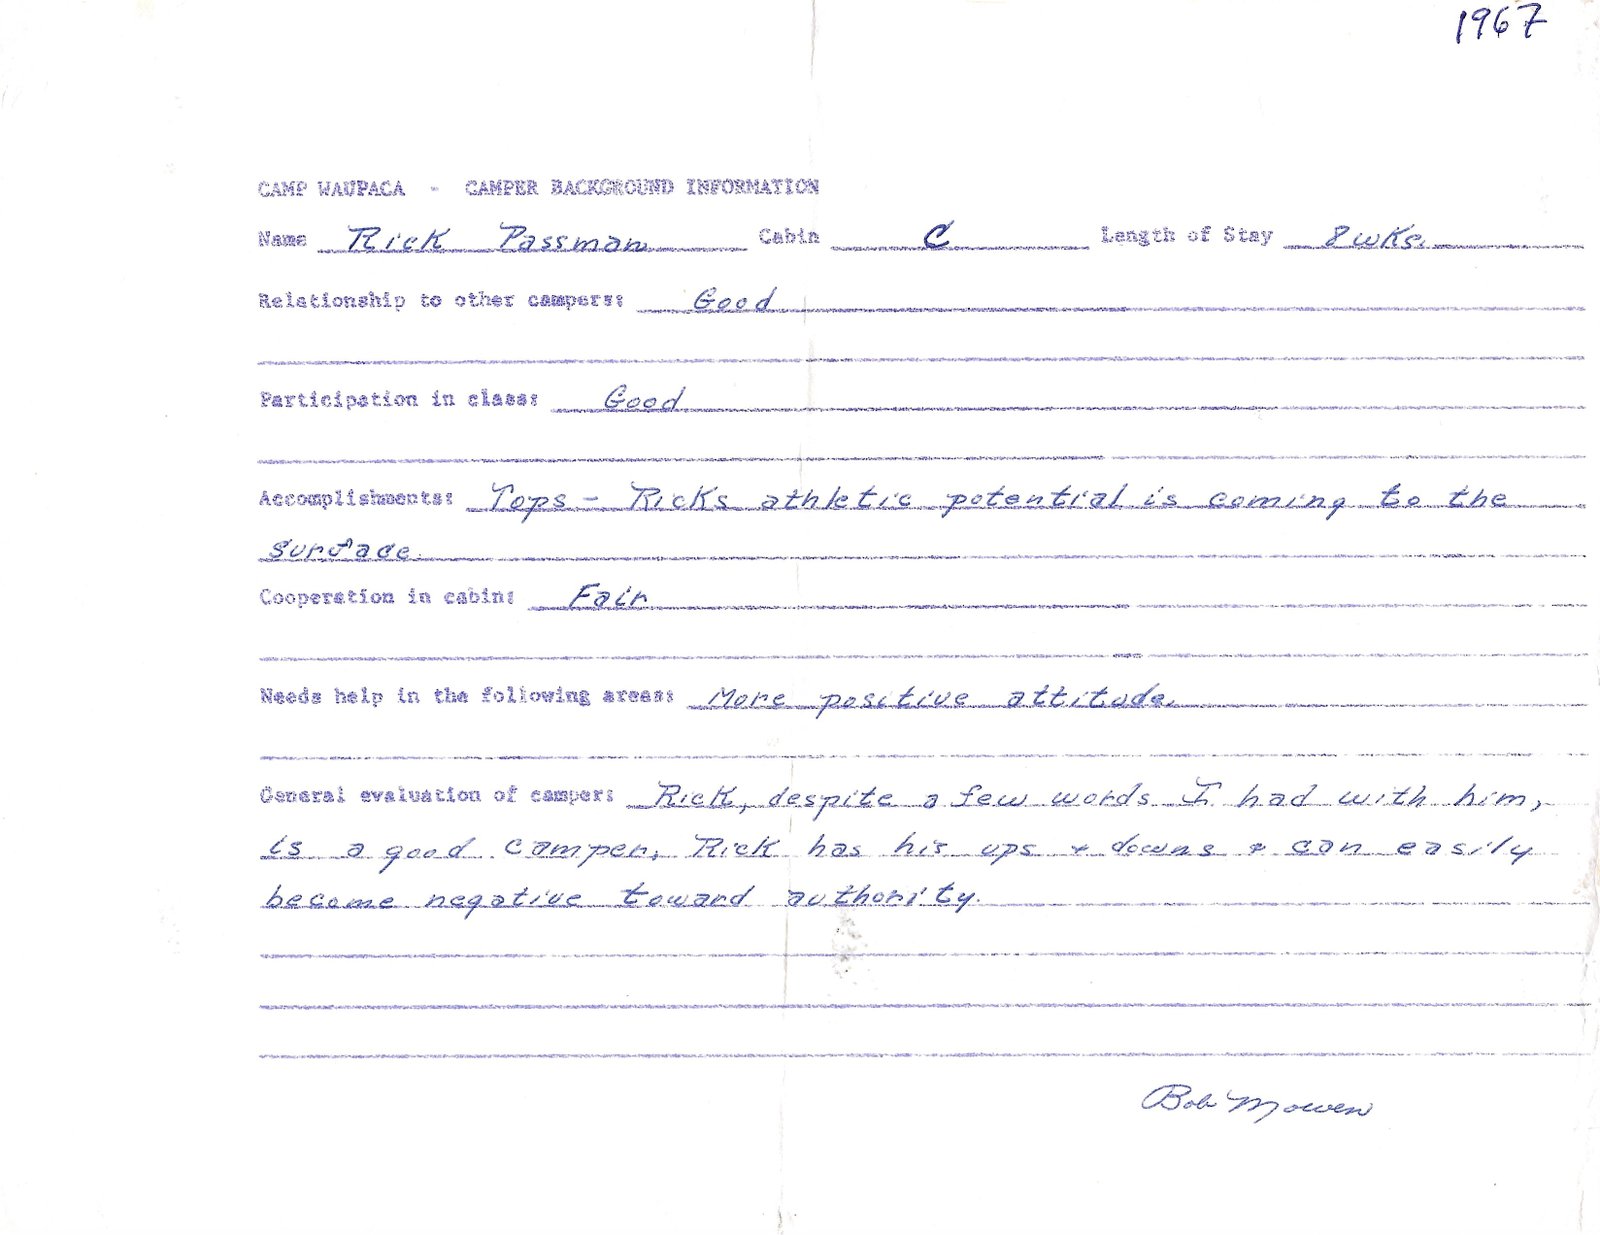 1967
CAMP WAUPACA - CAMPER BACKGROUND INFORMATION
Name Rick Passman Cabin C Length of Stay 8 wks.
Relationship to other campers: Good
Participation in class: Good
Accomplishments: Tops - Ricks athletic potential is coming to the
surface.
Cooperation in cabin: Fair
Needs help in the following areas: More positive attitude.
General evaluation of camper: Rick, despite a few words I had with him,
is a good camper, Rick has his ups & downs & can easily
become negative toward authority.
Bob Mowen